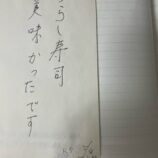 ちらし寿司
美味かったです